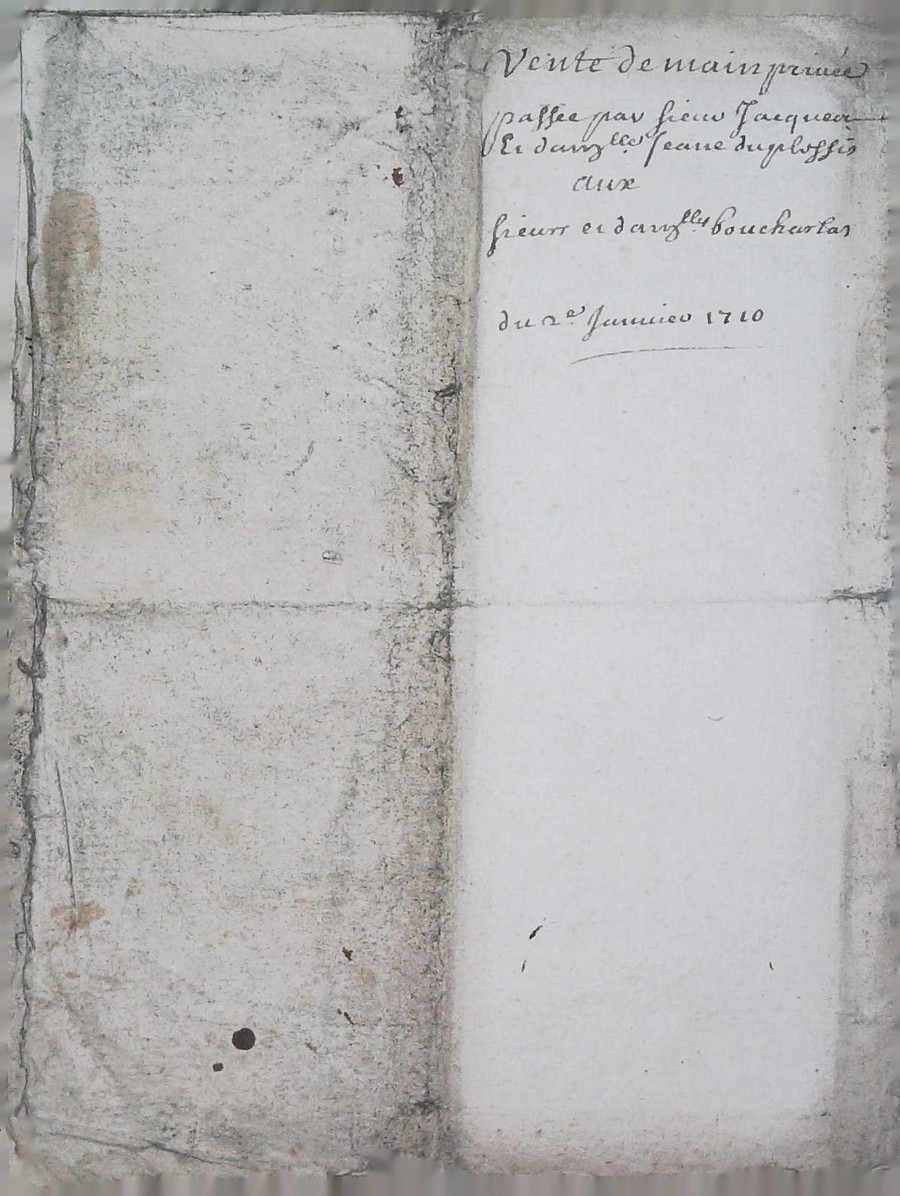 Vente de main privée
passée par sieur Jacques
Et damlle Jeane duplessis
aux
sieurs et damlles boucharlas
du 2e Janvier 1710